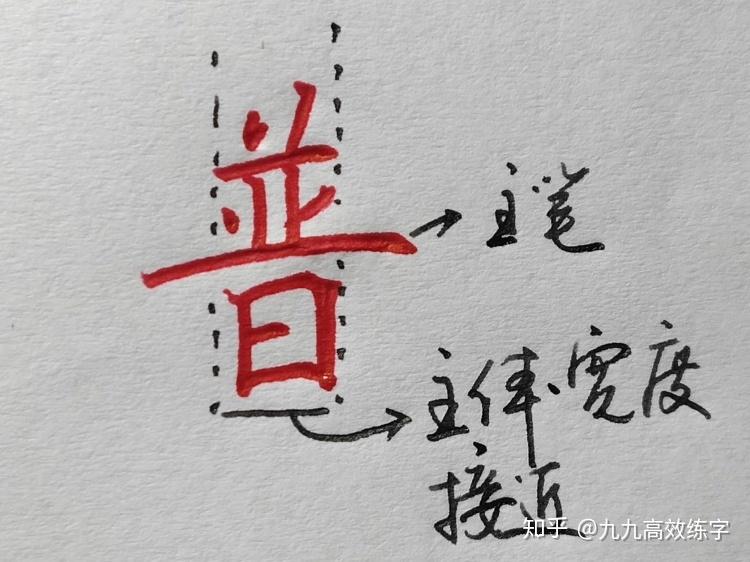 普
主笔
主体宽度
接近
知乎 @九九高效练字